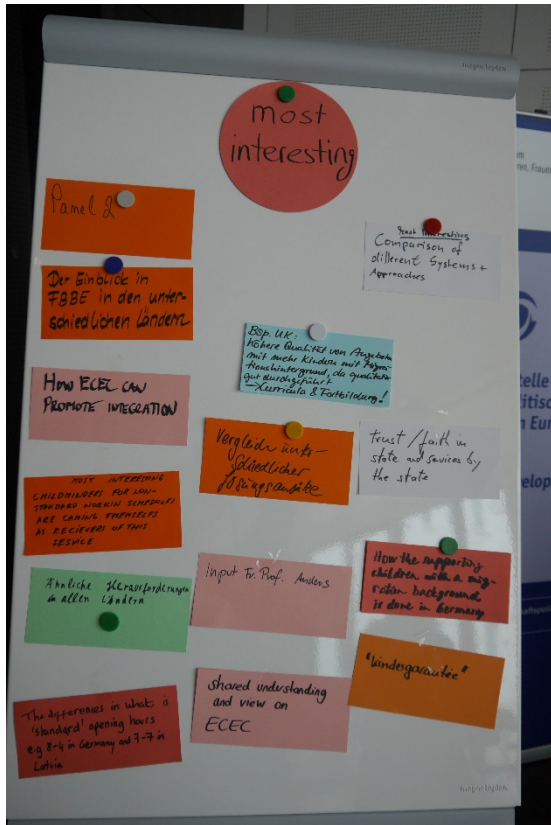 most
interesting
Panel 2
Der Einblick in
FBBE in den unter-
schiedlichen Ländern
How ECEC CAN
PROMOTE INTEGRATION
MOST INTERESTING
CHILDMINDERS FOR NON-
STANDARD WORKIN SCHEDULES
ARE CAMING THEMSELFS
AS RECIEVERS OF THIS
SERVICE
Ähnliche Herausforderungen
in allen Ländern
The differences in what is
'standard' opening hours
e.g 8-4 in Germany and 7-7 in
Latvia
Bsp. UK:
höhere Qualität von Angeboten
mit mehr Kindern mit Migra-
tionshintergrund, da
gut durchgeführt
→ Curricula & Fortbildung!
Vergleich unter-
schiedlicher
Lösungsansätze
Input Fr. Prof. Anders
shared understanding
and view on
ECEC
Most Interesting
Comparison of
different Systems +
Approaches
trust / faith in
state and services by
the state
How the supporting
children with a mig-
ration background
is done in Germany
"kindergarantee"
ren, Frauen
telle
litisc
n Eur
velop